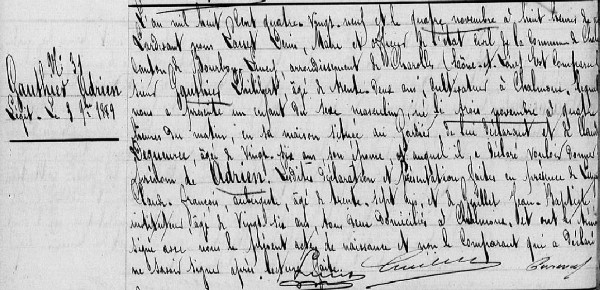 N° 31
Gauthier Adrien
Légit. Le 3 9bre 1889
L'an mil huit cent quatre-vingt-neuf et le quatre novembre à huit heures du
pardevant nous Lassot Louis, Maire et officier de l'état civil de la Commune de Chalmoux
canton de Bourbon-Lancy, arrondissement de Charolles (Saône-et-Loire) est comparu
sieur Gauthier âgé de trente-deux ans cultivateur à Chalmoux, lequel
nous a présenté un enfant du sexe masculin, né le trois novembre à quatre
heures du matin en sa maison située au de lui déclarant et de
âgée de vingt-six ans son épouse, et auquel il a déclaré vouloir donner
prénom de Adrien. Lesdites déclaration et présentation faites en présence de
Claude François aubergiste, âgé de trente-sept ans et de Jean-Baptiste
instituteur âgé de vingt-six ans tous deux domiciliés à Chalmoux. Et ont les témoins
signé avec nous le présent acte de naissance et non le comparant qui a déclaré
ne savoir signer après lecture faite.